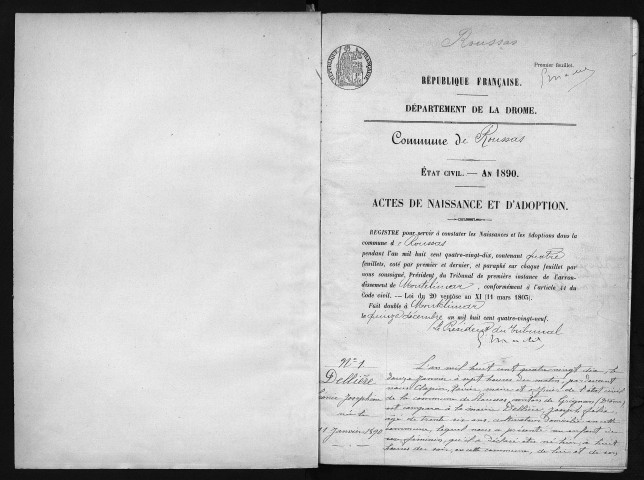 Roussas
Premier feuillet.
RÉPUBLIQUE FRANÇAISE.
DÉPARTEMENT DE LA DROME.
Commune de Roussas
ÉTAT CIVIL. — AN 1890.
ACTES DE NAISSANCE ET D'ADOPTION.
REGISTRE pour servir à constater les Naissances et les Adoptions dans la
commune de Roussas
pendant l'an mil huit cent quatre-vingt-dix, contenant quatre
feuillets, coté par premier et dernier, et paraphé sur chaque feuillet par
nous soussigné, Président du Tribunal de première instance de l'arron-
dissement de Montélimar, conformément à l'article 41 du
Code civil. — Loi du 20 ventôse an XI (11 mars 1803).
Fait double à Montélimar
le quinze décembre an mil huit cent quatre-vingt-neuf.
Le Président du Tribunal
N° 1
Dellière
Joséphine
née le
11 Janvier 1890
L'an mil huit cent quatre vingt dix, le
douze Janvier à sept heures du matin, par devant
nous Clapier, Xavier, maire et officier de l'état civil
de la commune de Roussas, canton de Grignan (Drôme)
est comparu à la mairie Dellière, Joseph
âgé de trente six ans, cultivateur domicilié en cette
commune, lequel nous a présenté un enfant du
sexe féminin, qu'il a déclaré être né hier à huit
heures du soir, en cette commune, de lui et de son